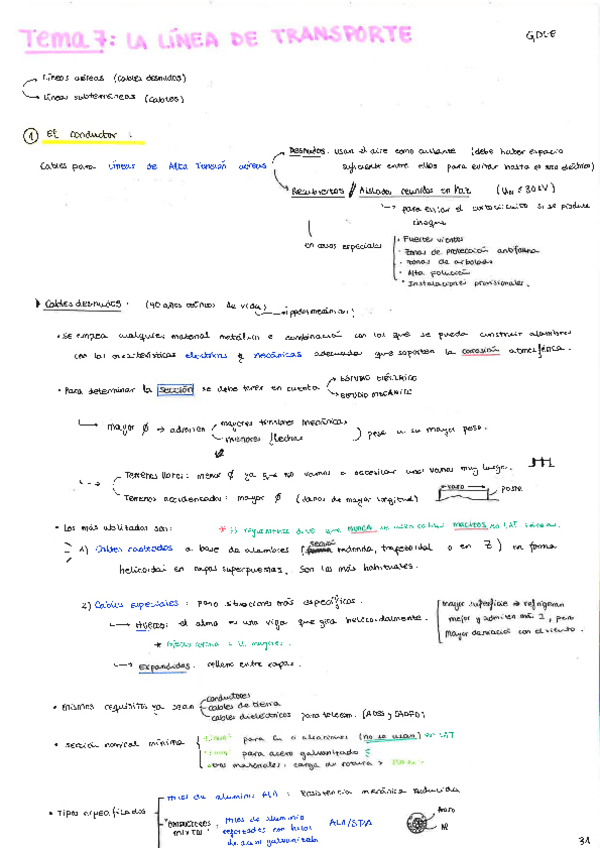 Tema 7: LA LÍNEA DE TRANSPORTE
GDEE
Líneas aéreas (cables desnudos)
Líneas subterráneas (cables)
① El conductor:
Cables para líneas de Alta Tensión aéreas
Desnudos: usan el aire como aislante (debe haber espacio
suficiente entre ellos para evitar hasta el arco eléctrico)
Recubiertos / Aislados reunidos en haz (UN ≤ 30 kV)
para evitar el cortocircuito si se produce
choque
en casos especiales
· Fuertes vientos
· Zonas de protección antifauna
· Zonas de arbolado
· Alta polución
· Instalaciones provisionales.
Cables desnudos: (40 años de vida)
· Se emplea cualquier material metálico o combinación con los que se pueda construir alambres
con las características eléctricas y mecánicas adecuadas que soporten la corrosión atmosférica.
· Para determinar la sección se debe tener en cuenta
ESTUDIO ELÉCTRICO
ESTUDIO MECÁNICO
mayor Ø → admiten
mayores tensiones mecánicas
menores flechas
pese a su mayor peso.
Terrenos llanos: menor Ø ya que no vamos a necesitar unos vanos muy largos.
Terrenos accidentados: mayor Ø (vanos de mayor longitud)
vano
poste
· Los más utilizados son:
* El reglamento dice que NUNCA se usen cables macizos en LAT aéreas.
1) Cables cableados a base de alambres (sección redonda, trapezoidal o en Z) en forma
helicoidal en capas superpuestas. Son los más habituales.
2) Cables especiales: para situaciones más específicas.
Huecos: el alma es una viga que gira helicoidalmente.
mayor superficie → refrigeran
mejor y admiten más I, pero
mayor desviación con el viento.
Expandidos: relleno entre capas.
· Mismos requisitos ya sean
conductores
cables de tierra
cables dieléctricos para telecom. (ADSS y OADFO)
· Sección nominal mínima
para Cu o aleaciones (no se usan) en LAT
para acero galvanizado
otros materiales: carga de rotura >
· Tipos especificados
Hilos de aluminio AL1: resistencia mecánica reducida
Conductores mixtos:
Hilos de aluminio
reforzados con hilos
de acero galvanizado
AL1/ST1A
Acero
Al
31